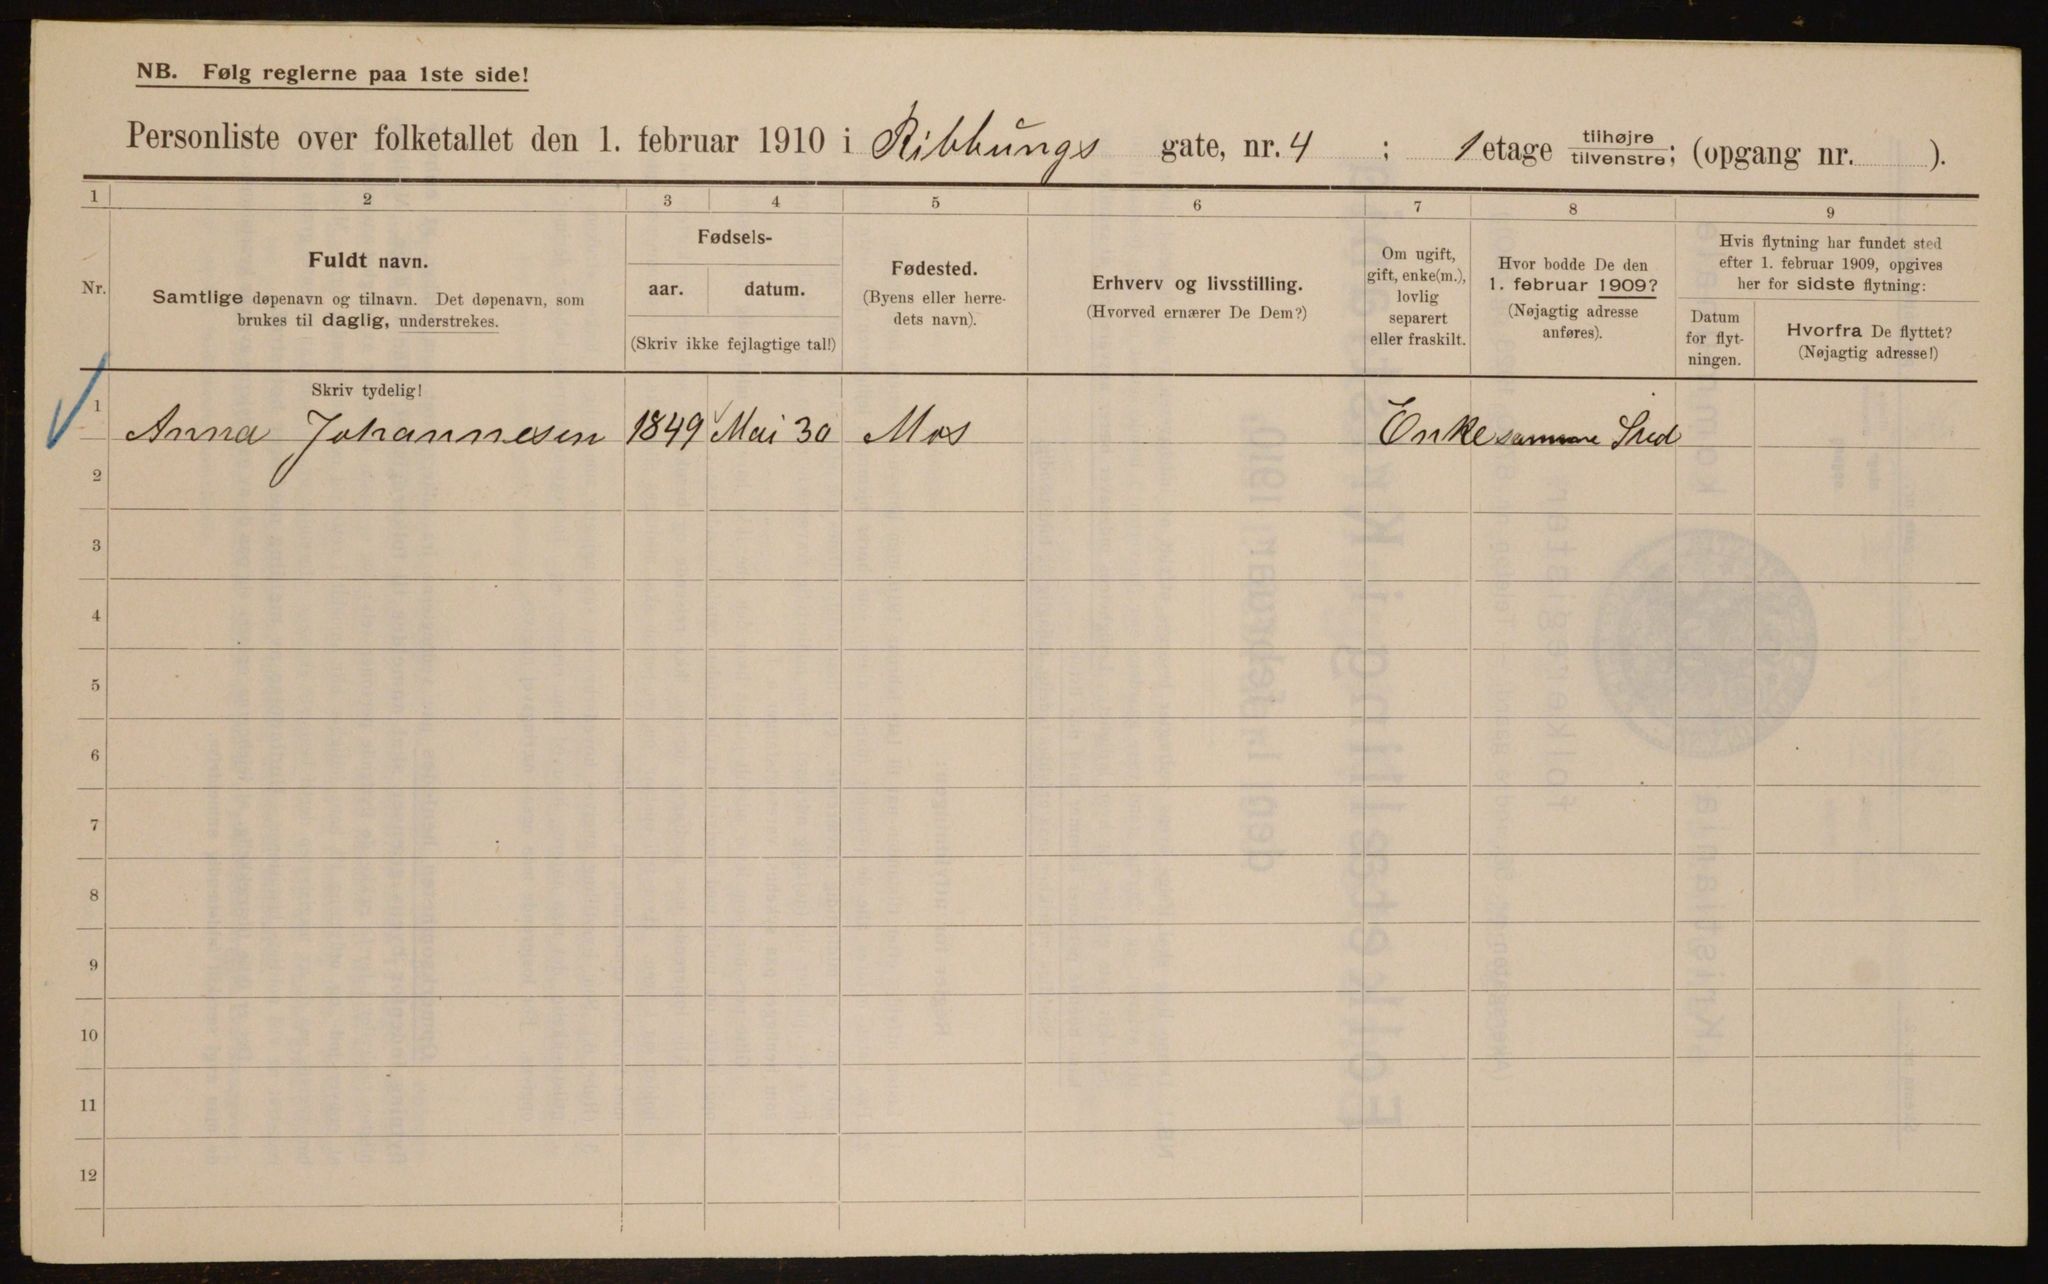 NB. Følg reglerne paa 1ste side!
Personliste over folketallet den 1. februar 1910 i Ribbungs gate, nr. 4 ; 1 etage tilhøjre tilvenstre; (opgang nr. ).
1 2 3 4 5 6 7 8 9
Nr.
Fuldt navn.
Samtlige døpenavn og tilnavn. Det døpenavn, som
brukes til daglig, understrekes.
Fødsels-
aar. datum.
(Skriv ikke fejlagtige tal!)
Fødested.
(Byens eller herre-
dets navn).
Erhverv og livsstilling.
(Hvorved ernærer De Dem?)
Om ugift,
gift, enke(m.),
lovlig
separert
eller fraskilt.
Hvor bodde De den
1. februar 1909?
(Nøjagtig adresse
anføres).
Hvis flytning har fundet sted
efter 1. februar 1909, opgives
her for sidste flytning:
Datum
for flyt-
ningen.
Hvorfra De flyttet?
(Nøjagtig adresse!)
Skriv tydelig!
1 Anna Johannesen 1849 Mai 30 Mos Enke samme Sted
2
3
4
5
6
7
8
9
10
11
12